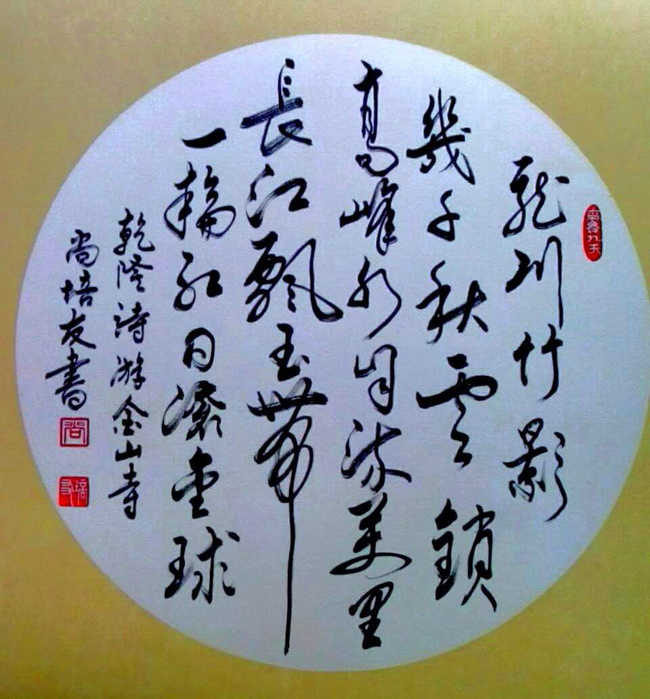 龍川竹影
幾千秋雲鎖
高峰水自流萬里
長江飄玉帶
一輪紅日滾金球
乾隆詩游金山寺
尚培友書